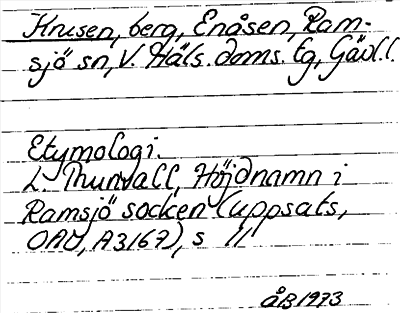 Krusen, berg, Enåsen, Ram-
sjö sn, V. Häls. doms. tg, Gävl. l.
Etymologi.
L. Thunvall, Höjdnamn i
Ramsjö socken (uppsats,
OAU, A3167), s 11
åB 1973